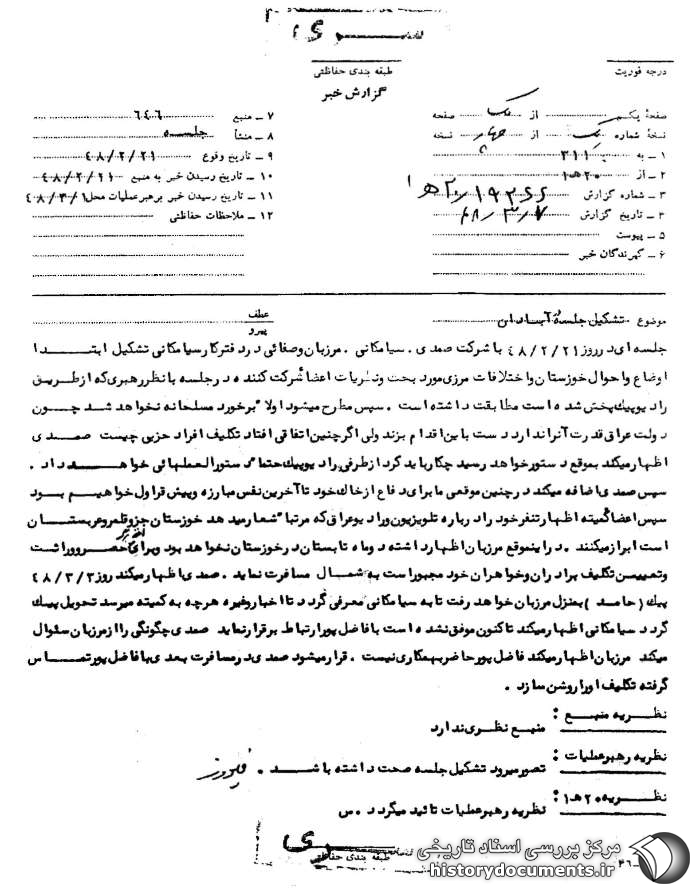 سری
درجه فوریت
طبقه بندی حفاظتی
گزارش خبر
صفحهٔ یکم از یک صفحه
نسخهٔ شماره یک از چهار نسخه
۱ ـ به ۳۱۱
۲ ـ از ۲۰ هـ ۱
۳ ـ شماره گزارش
۴ ـ تاریخ گزارش ۴۸/۳/۷
۵ ـ پیوست
۶ ـ گیرندگان خبر
۷ ـ منبع ۶۴۶
۸ ـ منشأ جلسه
۹ ـ تاریخ وقوع ۴۸/۲/۲۱
۱۰ ـ تاریخ رسیدن خبر به منبع ۴۸/۲/۲۱
۱۱ ـ تاریخ رسیدن خبر برهبر عملیات محل ۴۸/۳/۱
۱۲ ـ ملاحظات حفاظتی
موضوع تشکیل جلسهٔ آبادان
عطف
پیرو
جلسه ای در روز ۴۸/۲/۲۱ با شرکت صمدی . سیامکانی . مرزبان وصفائی در دفتر کار سیامکانی تشکیل ابتدا
اوضاع و احوال خوزستان و اختلافات مرزی مورد بحث و نظریات اعضا شرکت کننده در جلسه با نظر رهبری که از طریق
رادیو پیک پخش شده است مطابقت داشته است . سپس مطرح میشود اولا" برخورد مسلحانه نخواهد شد چون
دولت عراق قدرت آنرا ندارد دست باین اقدام بزند ولی اگر چنین اتفاقی افتاد تکلیف افراد حزبی چیست صمدی
اظهار میکند بموقع دستور خواهد رسید چکار باید کرد از طرفی رادیو پیک حتما" دستورالعملهائی خواهد داد .
سپس صمدی اضافه میکند در چنین موقعی ما برای دفاع از خاک خود تا آخرین نفس مبارزه و پیش قراول خواهیم بود
سپس اعضا کمیته اظهار تنفر خود را درباره تلویزیون و رادیو عراق که مرتبا" شعار میدهد خوزستان جزو قلمرو عربستان
است ابراز میکنند . در اینموقع مرزبان اظهار داشته دو ماه تابستان در خوزستان نخواهد بود و برای انحصر وراثت
و تعیین تکلیف برادران و خواهران خود مجبور است به شمال مسافرت نماید . صمدی اظهار میکند روز ۴۸/۳/۳
پیک (حامد) بمنزل مرزبان خواهد رفت تا به سیامکانی معرفی گردد تا اخبار وغیره هرچه به کمیته میرسد تحویل پیک
گردد سیامکانی اظهار میکند تاکنون موفق نشده است با فاضل پور ارتباط برقرار نماید صمدی چگونگی را از مرزبان سئوال
میکند مرزبان اظهار میکند فاضل پور حاضر بهمکاری نیست . قرار میشود صمدی در مسافرت بعدی با فاضل پور تماس
گرفته تکلیف اورا روشن سازد .
نظریه منبع :
منبع نظری ندارد
نظریه رهبر عملیات :
تصور میرود تشکیل جلسه صحت داشته باشد .
نظریه ۲۰ هـ ۱ :
نظریه رهبر عملیات تائید میگردد . س
سری
طبقه بندی حفاظتی
مرکز بررسی اسناد تاریخی
historydocuments.ir